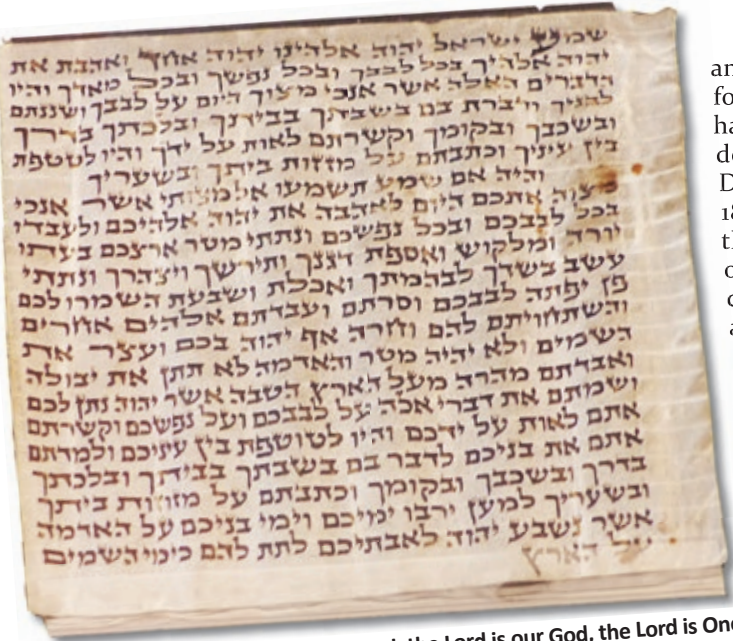 שמע ישראל יהוה אלהינו יהוה אחד ואהבת את
יהוה אלהיך בכל לבבך ובכל נפשך ובכל מאדך והיו
הדברים האלה אשר אנכי מצוך היום על לבבך ושננתם
לבניך ודברת בם בשבתך בביתך ובלכתך בדרך
ובשכבך ובקומך וקשרתם לאות על ידך והיו לטטפת
בין עיניך וכתבתם על מזזות ביתך ובשעריך
והיה אם שמע תשמעו אל מצותי אשר אנכי
מצוה אתכם היום לאהבה את יהוה אלהיכם ולעבדו
בכל לבבכם ובכל נפשכם ונתתי מטר ארצכם בעתו
יורה ומלקוש ואספת דגנך ותירשך ויצהרך ונתתי
עשב בשדך לבהמתך ואכלת ושבעת השמרו לכם
פן יפתה לבבכם וסרתם ועבדתם אלהים אחרים
והשתחויתם להם וחרה אף יהוה בכם ועצר את
השמים ולא יהיה מטר והאדמה לא תתן את יבולה
ואבדתם מהרה מעל הארץ הטבה אשר יהוה נתן לכם
ושמתם את דברי אלה על לבבכם ועל נפשכם וקשרתם
אתם לאות על ידכם והיו לטוטפת בין עיניכם ולמדתם
אתם את בניכם לדבר בם בשבתך בביתך ובלכתך
בדרך ובשכבך ובקומך וכתבתם על מזוזות ביתך
ובשעריך למען ירבו ימיכם וימי בניכם על האדמה
אשר נשבע יהוה לאבתיכם לתת להם כימי השמים
על הארץ
the Lord is our God, the Lord is One